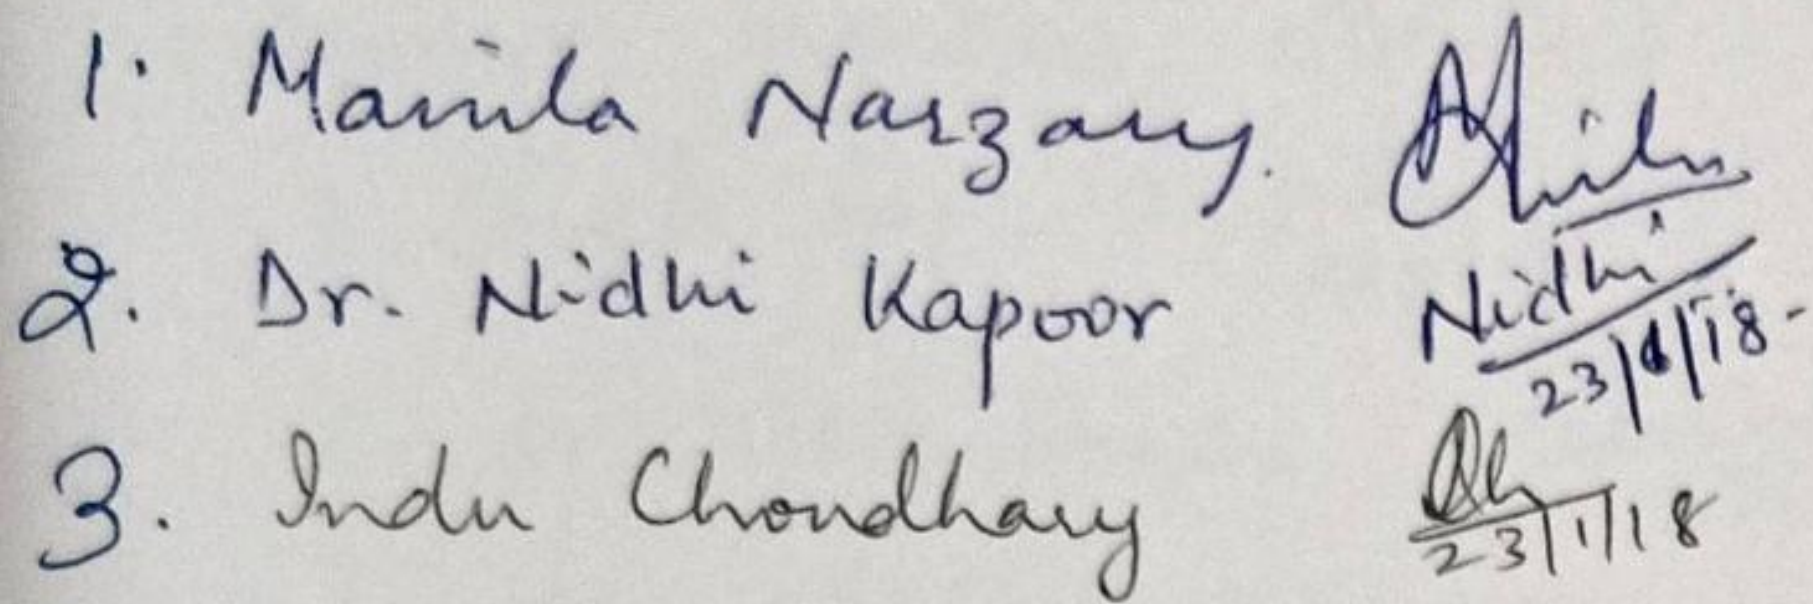 1. Manila Narzary.
2. Dr. Nidhi Kapoor Nidhi
23/1/18
3. Indu Choudhary
23/1/18